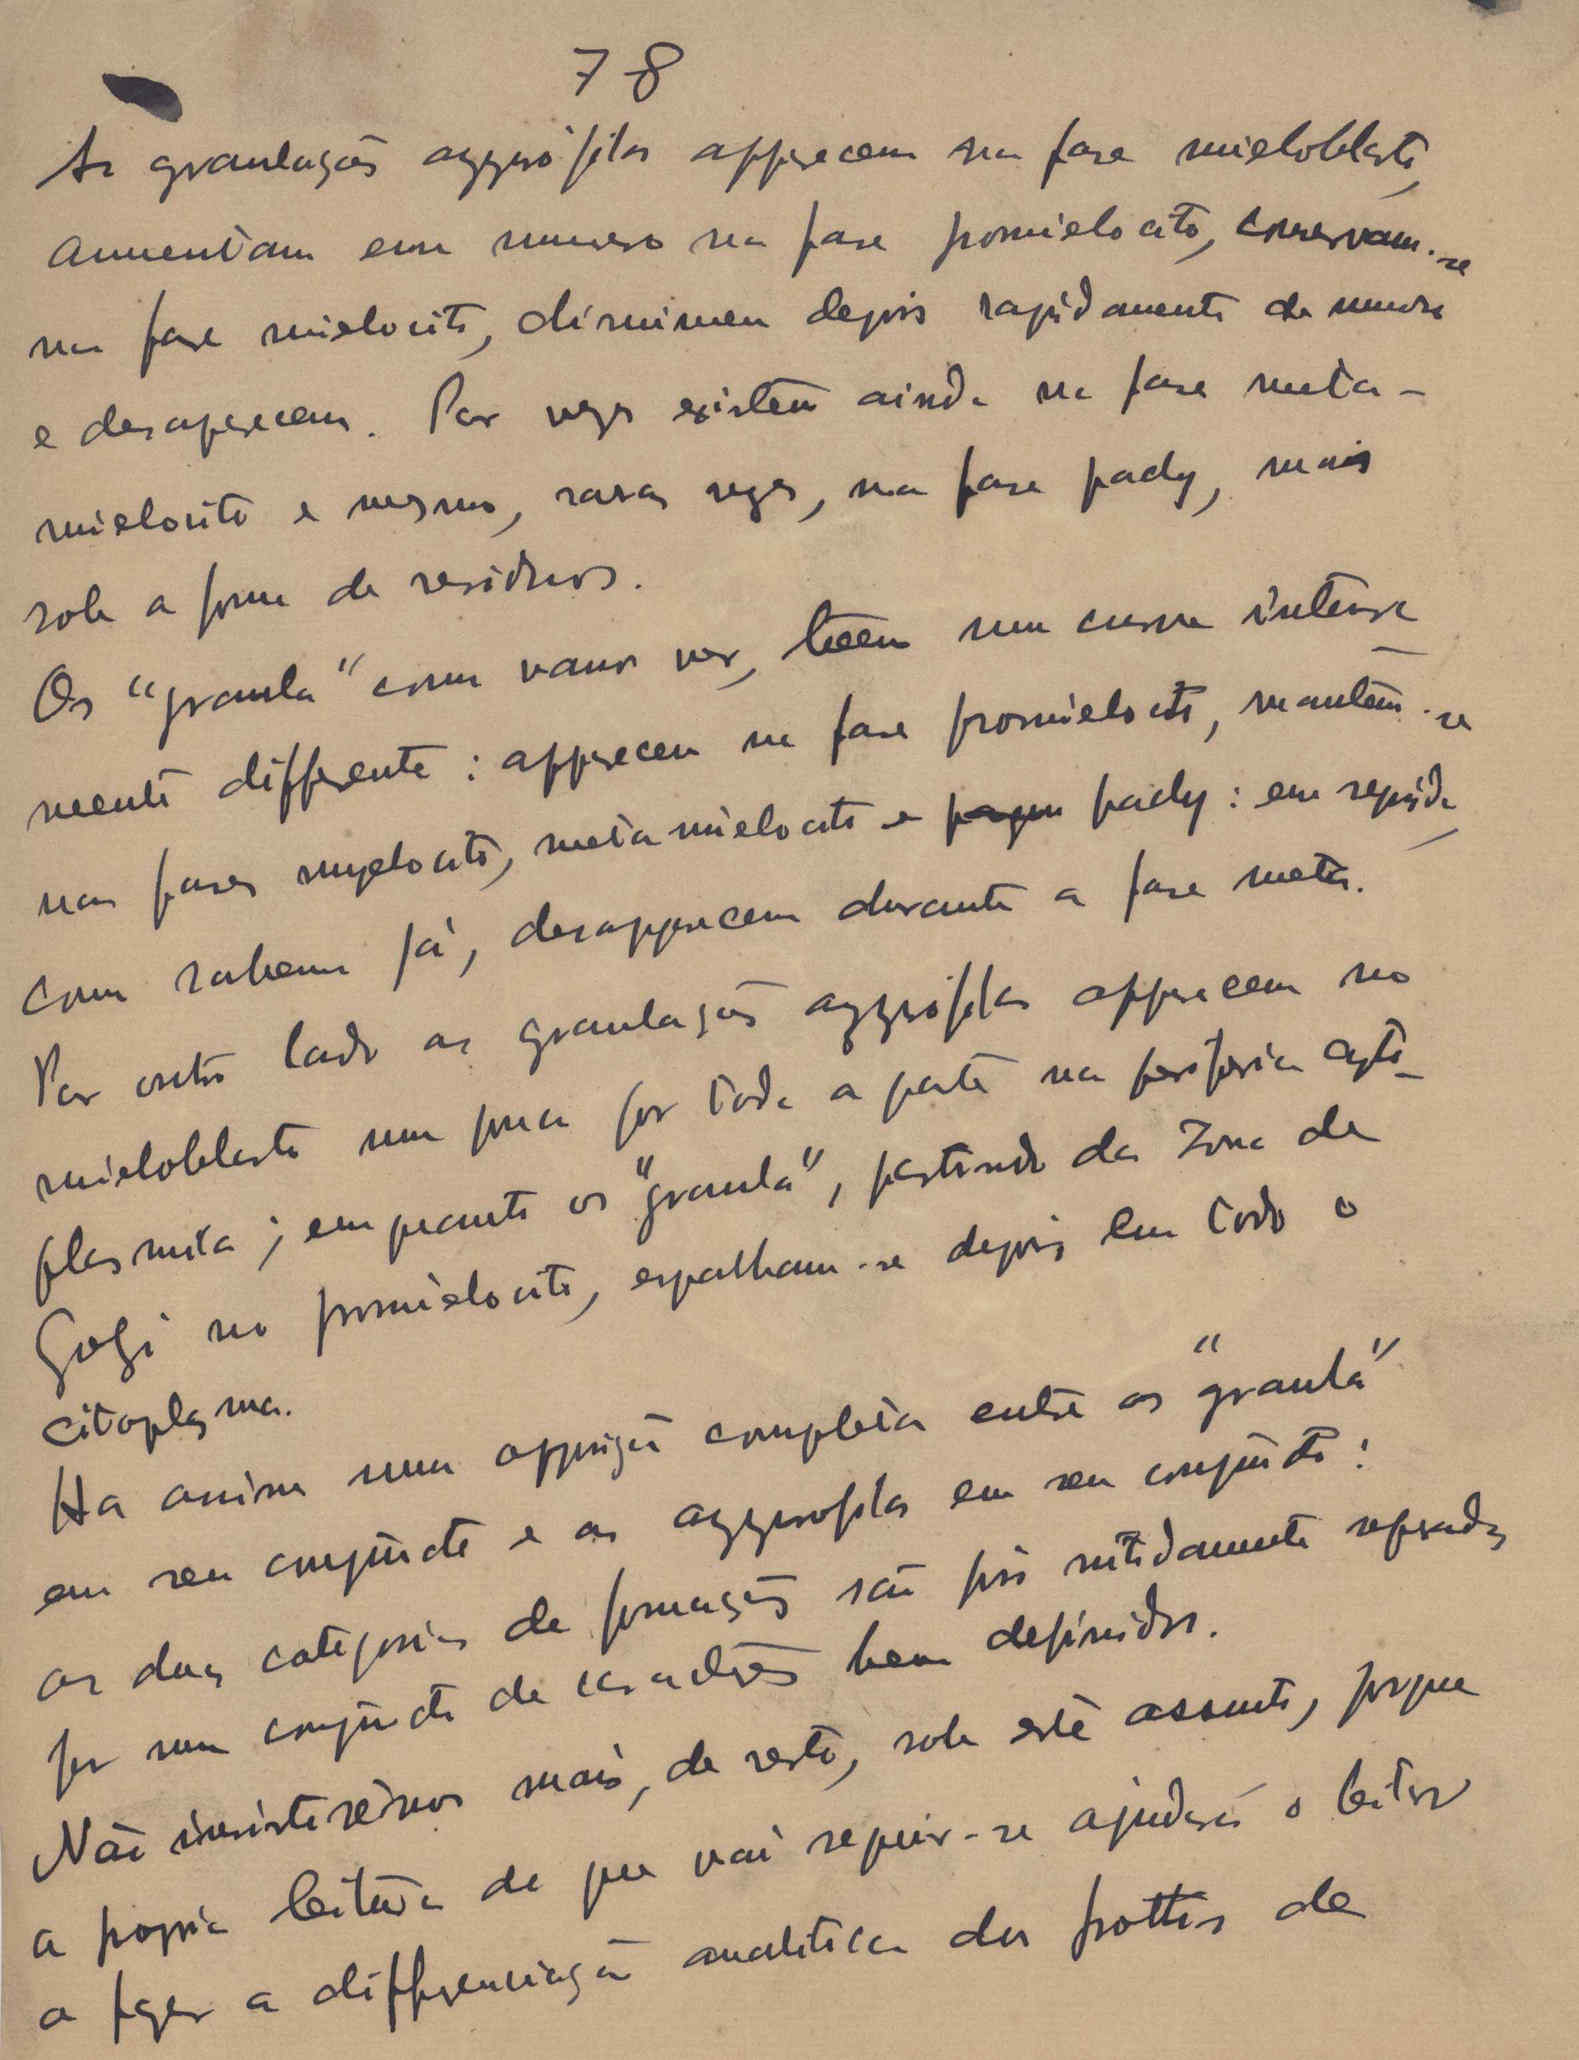 78
As granulações azurófilas apparecem na fase mieloblasto,
aumentam em numero na fase promielocito, conservam-se
na fase mielocito, diminuem depois rapidamente de numero
e desaparecem. Por vezes existem ainda na fase meta-
mielocito e mesmo, raras vezes, na fase pady, mais
sob a forma de residuos.
Os "granula" como vamos ver, teem um curso inteira
mente differente: apparecem na fase promielocito, mantém-se
nas fases myelocito, metamielocito e pady: em seguida,
como sabem já, desapparecem durante a fase meta.
Por outro lado as granulações azzurófilas apparecem no
mieloblasto um pouco por toda a parte na periferia cyto-
plasmica; emquanto os "granula", partindo da Zona de
Golgi no promielocito, espalham-se depois em todo o
citoplasma.
Ha assim uma opposição completa entre os "granula"
em seu conjuncto e as azzurofilas em seu conjuncto:
as duas categorias de formações são pois nitidamente separadas
por um conjuncto de caractéres bem definidos.
Não insistirêmos mais, de resto, sob este assunto, porque
a propria leitura do que vai seguir-se ajudará o leitor
a fazer a differenciação analitica dos frottis de